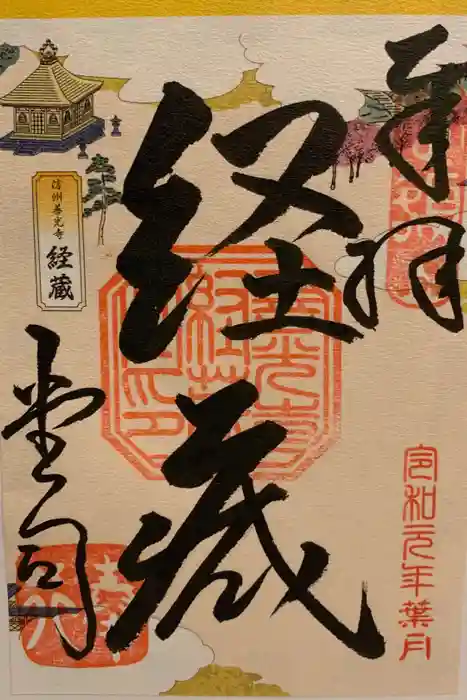 奉拝
経蔵
信州善光寺
経蔵
堂司
令和元年葉月